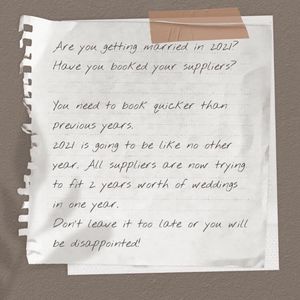 Are you getting married in 2021?
Have you booked your suppliers?
You need to book quicker than
previous years.
2021 is going to be like no other
year. All suppliers are now trying
to fit 2 years worth of weddings
in one year.
Don't leave it too late or you will
be disappointed!